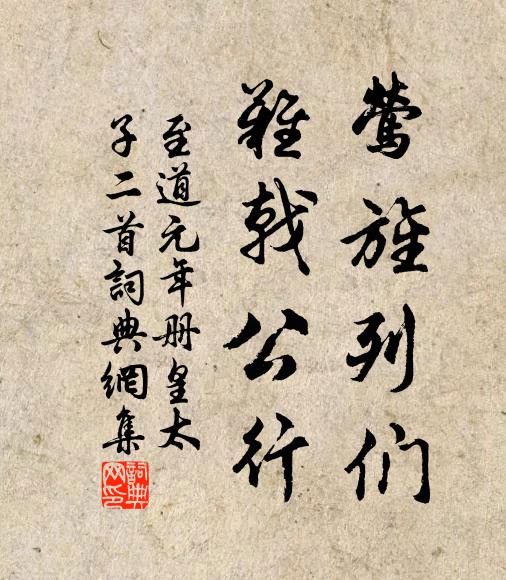 鶯旌列们
難戟公行
至道元年册皇太
子二首詞典網集
詞典
网印